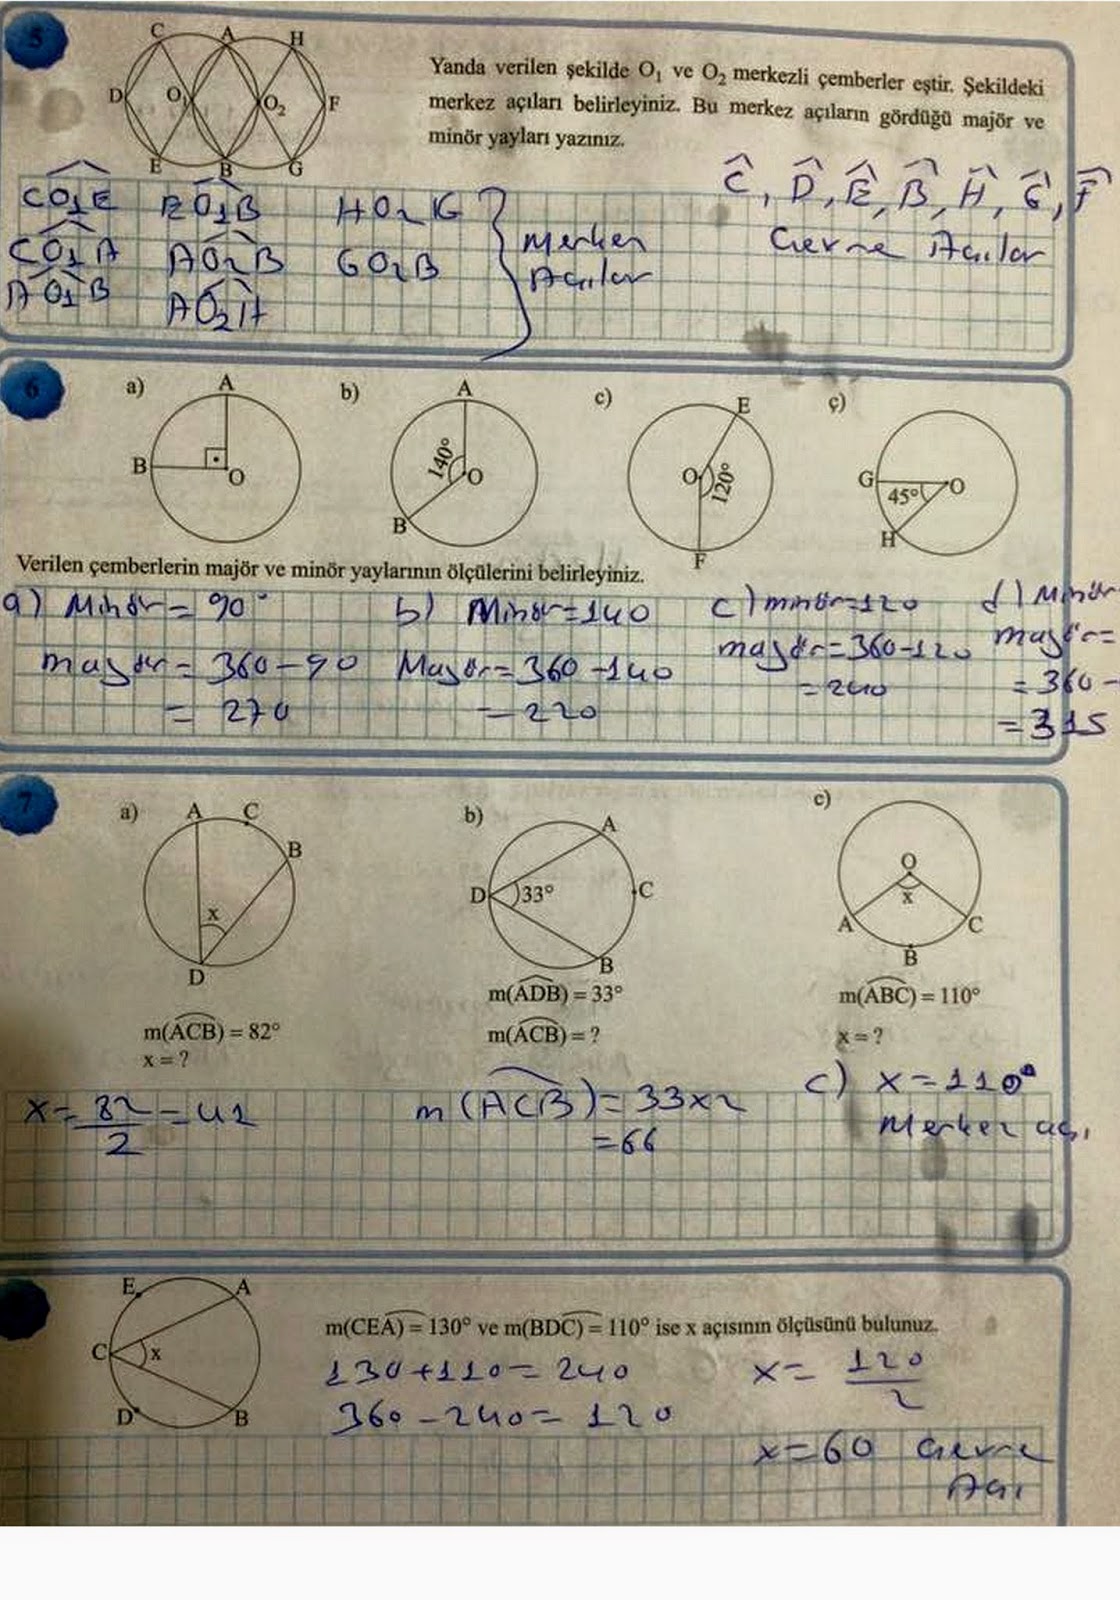 5
C A H
D O1 O2 F
E B G
Yanda verilen şekilde O1 ve O2 merkezli çemberler eştir. Şekildeki
merkez açıları belirleyiniz. Bu merkez açıların gördüğü majör ve
minör yayları yazınız.
C, D, E, B, H, G, F
Çevre Açılar
CO1E EO1B HO2G
CO1A AO2B GO2B
AO1B AO2H
Merkez
Açılar
6
a) A B O
b) A 140° O B
c) E O 120° F
ç) G O 45° H
Verilen çemberlerin majör ve minör yaylarının ölçülerini belirleyiniz.
a) Minör = 90°
majör = 360 - 90
= 270
b) Minör = 140
Majör = 360 - 140
= 220
c) minör = 120
majör = 360 - 120
= 240
d) Minör
majör =
= 360 -
= 315
7
a) A C B x D
m(ACB) = 82°
x = ?
b) A D 33° C B
m(ADB) = 33°
m(ACB) = ?
c) O x A C B
m(ABC) = 110°
x = ?
x = 82/2 = 41
m(ACB) = 33x2
= 66
c) x = 110°
Merkez açı
E A
C x
D B
m(CEA) = 130° ve m(BDC) = 110° ise x açısının ölçüsünü bulunuz.
130 + 110 = 240
360 - 240 = 120
x = 120/2
x = 60 Çevre
Açı